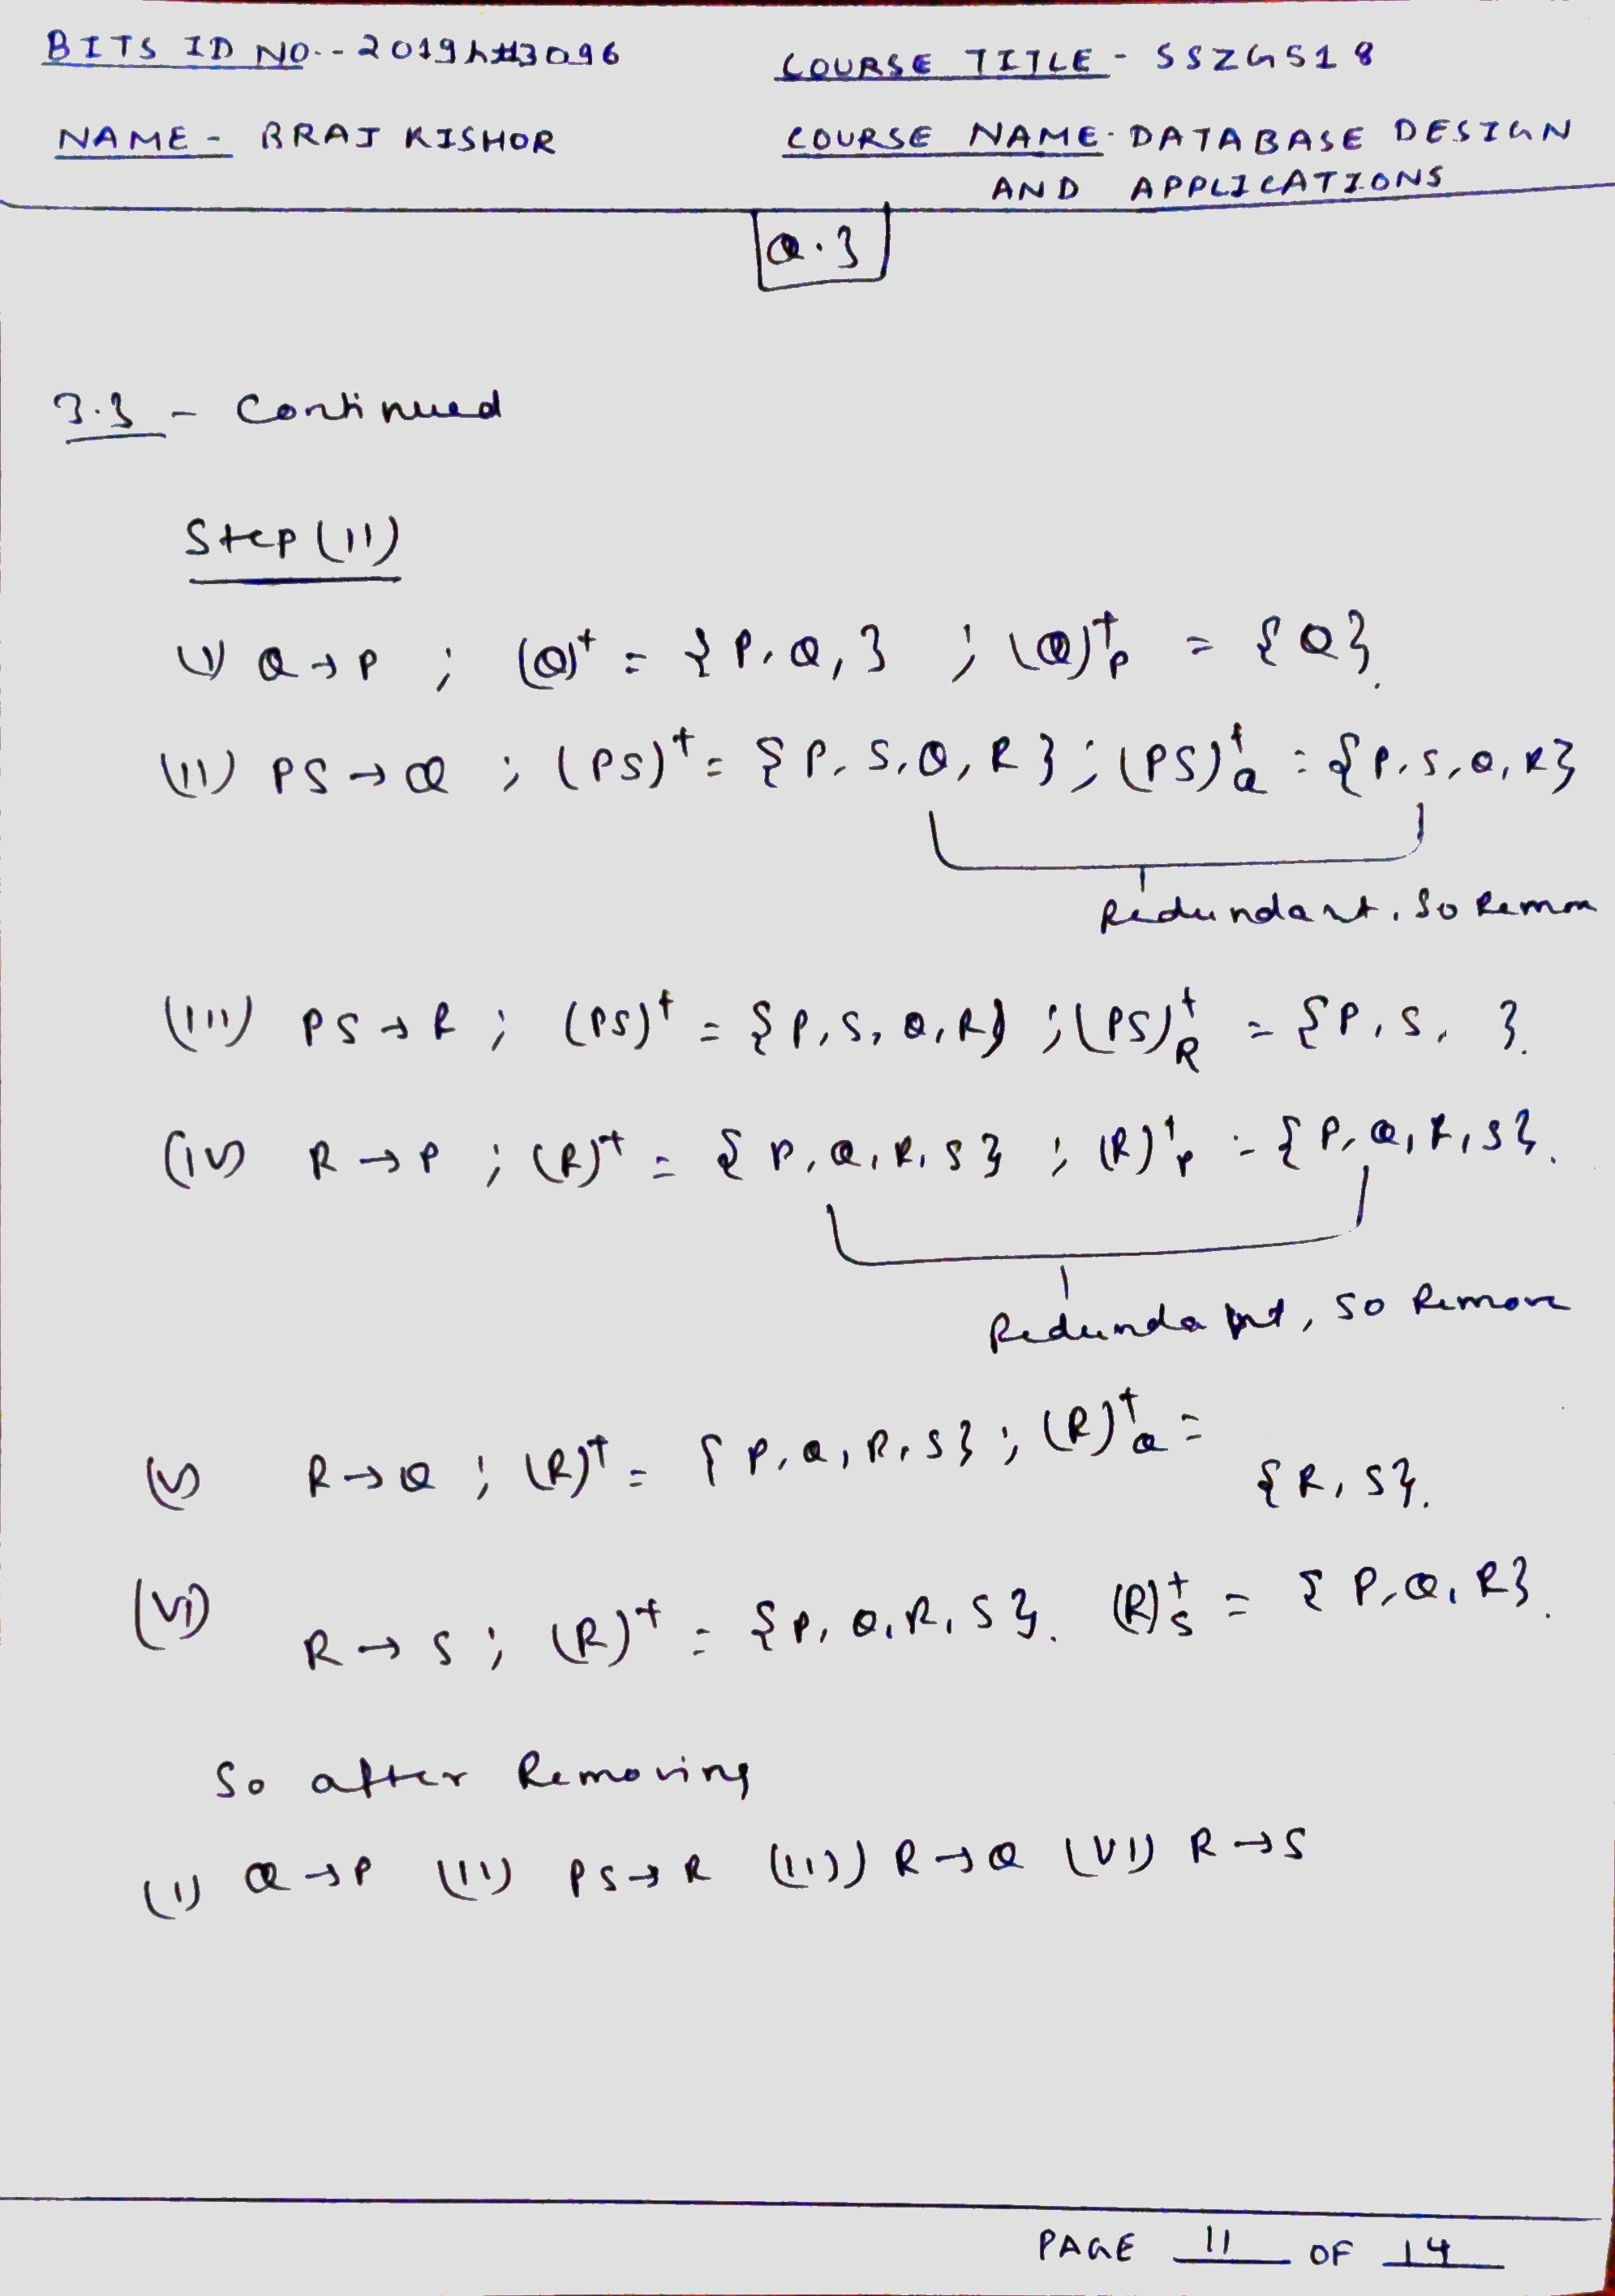 BITS ID NO.-- 2019ht13096
COURSE TITLE - SSZG518
NAME - BRAJ KISHOR
COURSE NAME - DATABASE DESIGN
AND APPLICATIONS
Q.3
3.3 - Continued
Step (II)
(I) Q → P ; (Q)⁺ = {P, Q, } ; (Q)⁺P = {Q}.
(II) PS → Q ; (PS)⁺ = {P, S, Q, R} ; (PS)⁺Q = {P, S, Q, R}
Redundant, So
(III) PS → R ; (PS)⁺ = {P, S, Q, R} ; (PS)⁺R = {P, S, }.
(IV) R → P ; (R)⁺ = {P, Q, R, S} ; (R)⁺P = {P, Q, R, S}.
Redundant, so Remove
(V) R → Q ; (R)⁺ = {P, Q, R, S} ; (R)⁺Q =
{R, S}.
(VI) R → S ; (R)⁺ = {P, Q, R, S}. (R)⁺S = {P, Q, R}.
So after Removing
(I) Q → P (II) PS → R (III) R → Q (VI) R → S
PAGE 11 OF 14